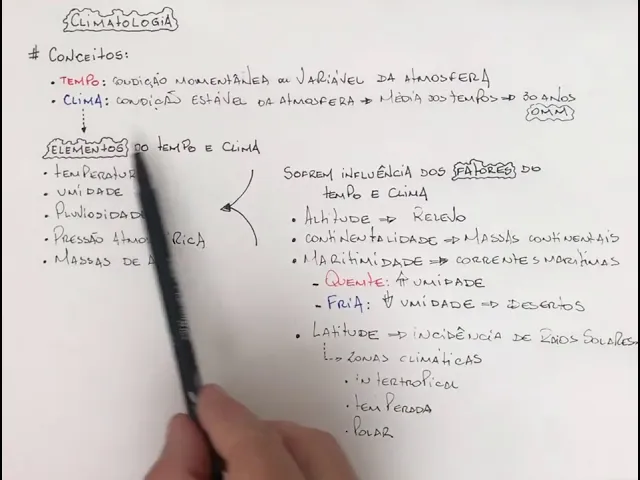 CLIMATOLOGIA
# CONCEITOS:
• TEMPO: CONDIÇÃO MOMENTÂNEA OU VARIÁVEL DA ATMOSFERA
• CLIMA: CONDIÇÃO ESTÁVEL DA ATMOSFERA → MÉDIA DOS TEMPOS → 30 ANOS
OMM
ELEMENTOS DO TEMPO E CLIMA
• TEMPERATUR
• UMIDADE
• PLUVIOSIDAD
• PRESSÃO ATMO RICA
• MASSAS DE A
SOFREM INFLUÊNCIA DOS FATORES DO
TEMPO E CLIMA
• ALTITUDE → RELEVO
• CONTINENTALIDADE → MASSAS CONTINENTAIS
• MARITIMIDADE → CORRENTES MARÍTIMAS
- QUENTE: ⇑ UMIDADE
- FRIA: ⇓ UMIDADE → DESERTOS
• LATITUDE → INCIDÊNCIA DE RAIOS SOLARES
↳ ZONAS CLIMÁTICAS
• INTERTROPICAL
• TEMPERADA
• POLAR